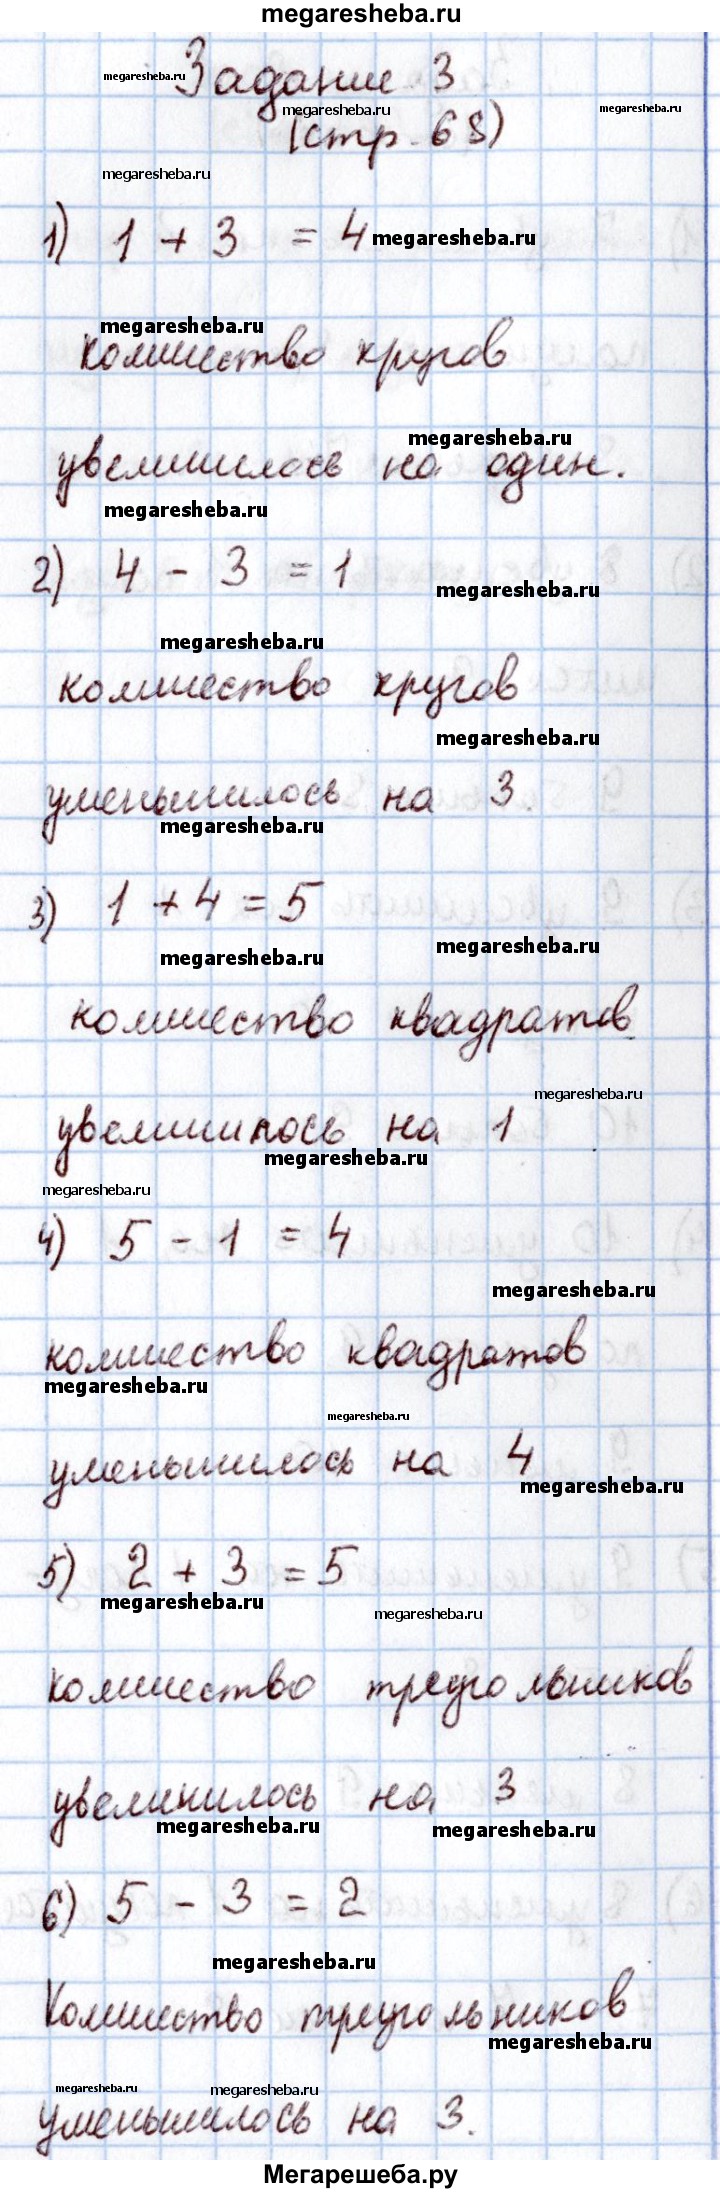 megaresheba.ru
Задание 3
megaresheba.ru
megaresheba.ru
megaresheba.ru
(стр. 68)
megaresheba.ru
1) 1 + 3 = 4
megaresheba.ru
megaresheba.ru
количество кругов
megaresheba.ru
увеличилось на один.
megaresheba.ru
2) 4 - 3 = 1
megaresheba.ru
megaresheba.ru
количество кругов
megaresheba.ru
уменьшилось на 3.
megaresheba.ru
3) 1 + 4 = 5
megaresheba.ru
megaresheba.ru
количество квадратов
megaresheba.ru
увеличилось на 1
megaresheba.ru
megaresheba.ru
4) 5 - 1 = 4
megaresheba.ru
количество квадратов
megaresheba.ru
megaresheba.ru
уменьшилось на 4
megaresheba.ru
5) 2 + 3 = 5
megaresheba.ru
megaresheba.ru
количество треугольников
увеличилось на 3
megaresheba.ru
megaresheba.ru
6) 5 - 3 = 2
megaresheba.ru
Количество треугольников
megaresheba.ru
megaresheba.ru
megaresheba.ru
уменьшилось на 3.
Мегарешеба.ру